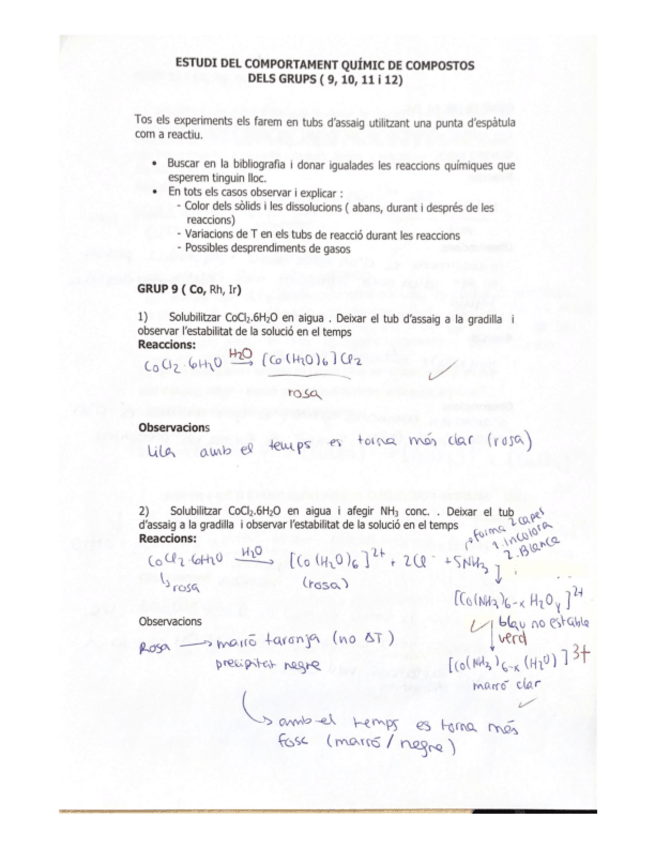 ESTUDI DEL COMPORTAMENT QUÍMIC DE COMPOSTOS
DELS GRUPS ( 9, 10, 11 i 12)
Tos els experiments els farem en tubs d'assaig utilitzant una punta d'espàtula
com a reactiu.
• Buscar en la bibliografia i donar igualades les reaccions químiques que
esperem tinguin lloc.
• En tots els casos observar i explicar :
- Color dels sòlids i les dissolucions ( abans, durant i després de les
reaccions)
- Variacions de T en els tubs de reacció durant les reaccions
- Possibles desprendiments de gasos
GRUP 9 ( Co, Rh, Ir)
1) Solubilitzar CoCl₂.6H₂O en aigua . Deixar el tub d'assaig a la gradilla i
observar l'estabilitat de la solució en el temps
Reaccions:
CoCl₂·6H₂O H₂O → [Co(H₂O)₆]Cl₂
rosa
Observacions
Lila amb el temps es torna més clar (rosa)
2) Solubilitzar CoCl₂.6H₂O en aigua i afegir NH₃ conc. . Deixar el tub
d'assaig a la gradilla i observar l'estabilitat de la solució en el temps
Reaccions:
forma 2 capes
1. incolora
2. Blanca
CoCl₂·6H₂O H₂O → [Co(H₂O)₆]²⁺ + 2Cl⁻ + 5NH₃
↳ rosa (rosa)
[Co(NH₃)₆₋ₓ H₂Oᵧ]²⁺
blau no estable
verd
[Co(NH₃)₆₋ₓ(H₂O)]³⁺
marró clar
Observacions
Rosa → marró taronja (no ΔT)
precipitat negre
↳ amb el temps es torna més
fosc (marró / negre)